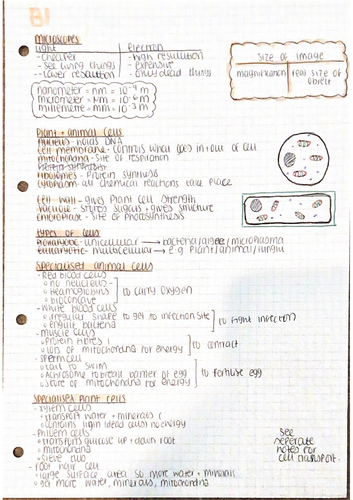 B1
microscopes
light
electron
- cheaper
- high resolution
- see living things
- expensive
- lower resolution
- only dead things
size of image
magnification
real size of object
nanometer = nm = 10⁻⁹ m
micrometer = μm = 10⁻⁶ m
millimetre = mm = 10⁻³ m
Plant + animal cells
nucleus - holds DNA
cell membrane - controls what goes in + out of cell
mitochondria - site of respiration
ribosomes - Protein synthesis
cytoplasm - all chemical reactions take place
cell wall - gives plant cell strength
vacuole - stores sugars + gives structure
chloroplast - site of photosynthesis
types of cells
prokaryotic - unicellular → bacteria/algae/
eukaryotic - multicellular → e.g plant/animal/fungi
specialised animal cells
- Red blood cells
o no nucleus
o haemoglobin
o biconcave
to carry oxygen
- White blood cells
o irregular shape to get to infection site
o engulf bacteria
to fight infection
- muscle cells
o protein fibres
o lots of mitochondria for energy
to contract
- sperm cell
o tail to swim
o acrosome to break barrier of egg
o store of mitochondria for energy
to fertilise egg
specialised Plant cells
- xylem cells
o transport water + minerals
o contains lignin (dead cells) no energy
- Phloem cells
o transports glucose up + down root
o mitochondria
o sieve
- root hair cell
o large surface area so more water + minerals
o get more water, minerals, mitochondria
see seperate notes for cell transport.